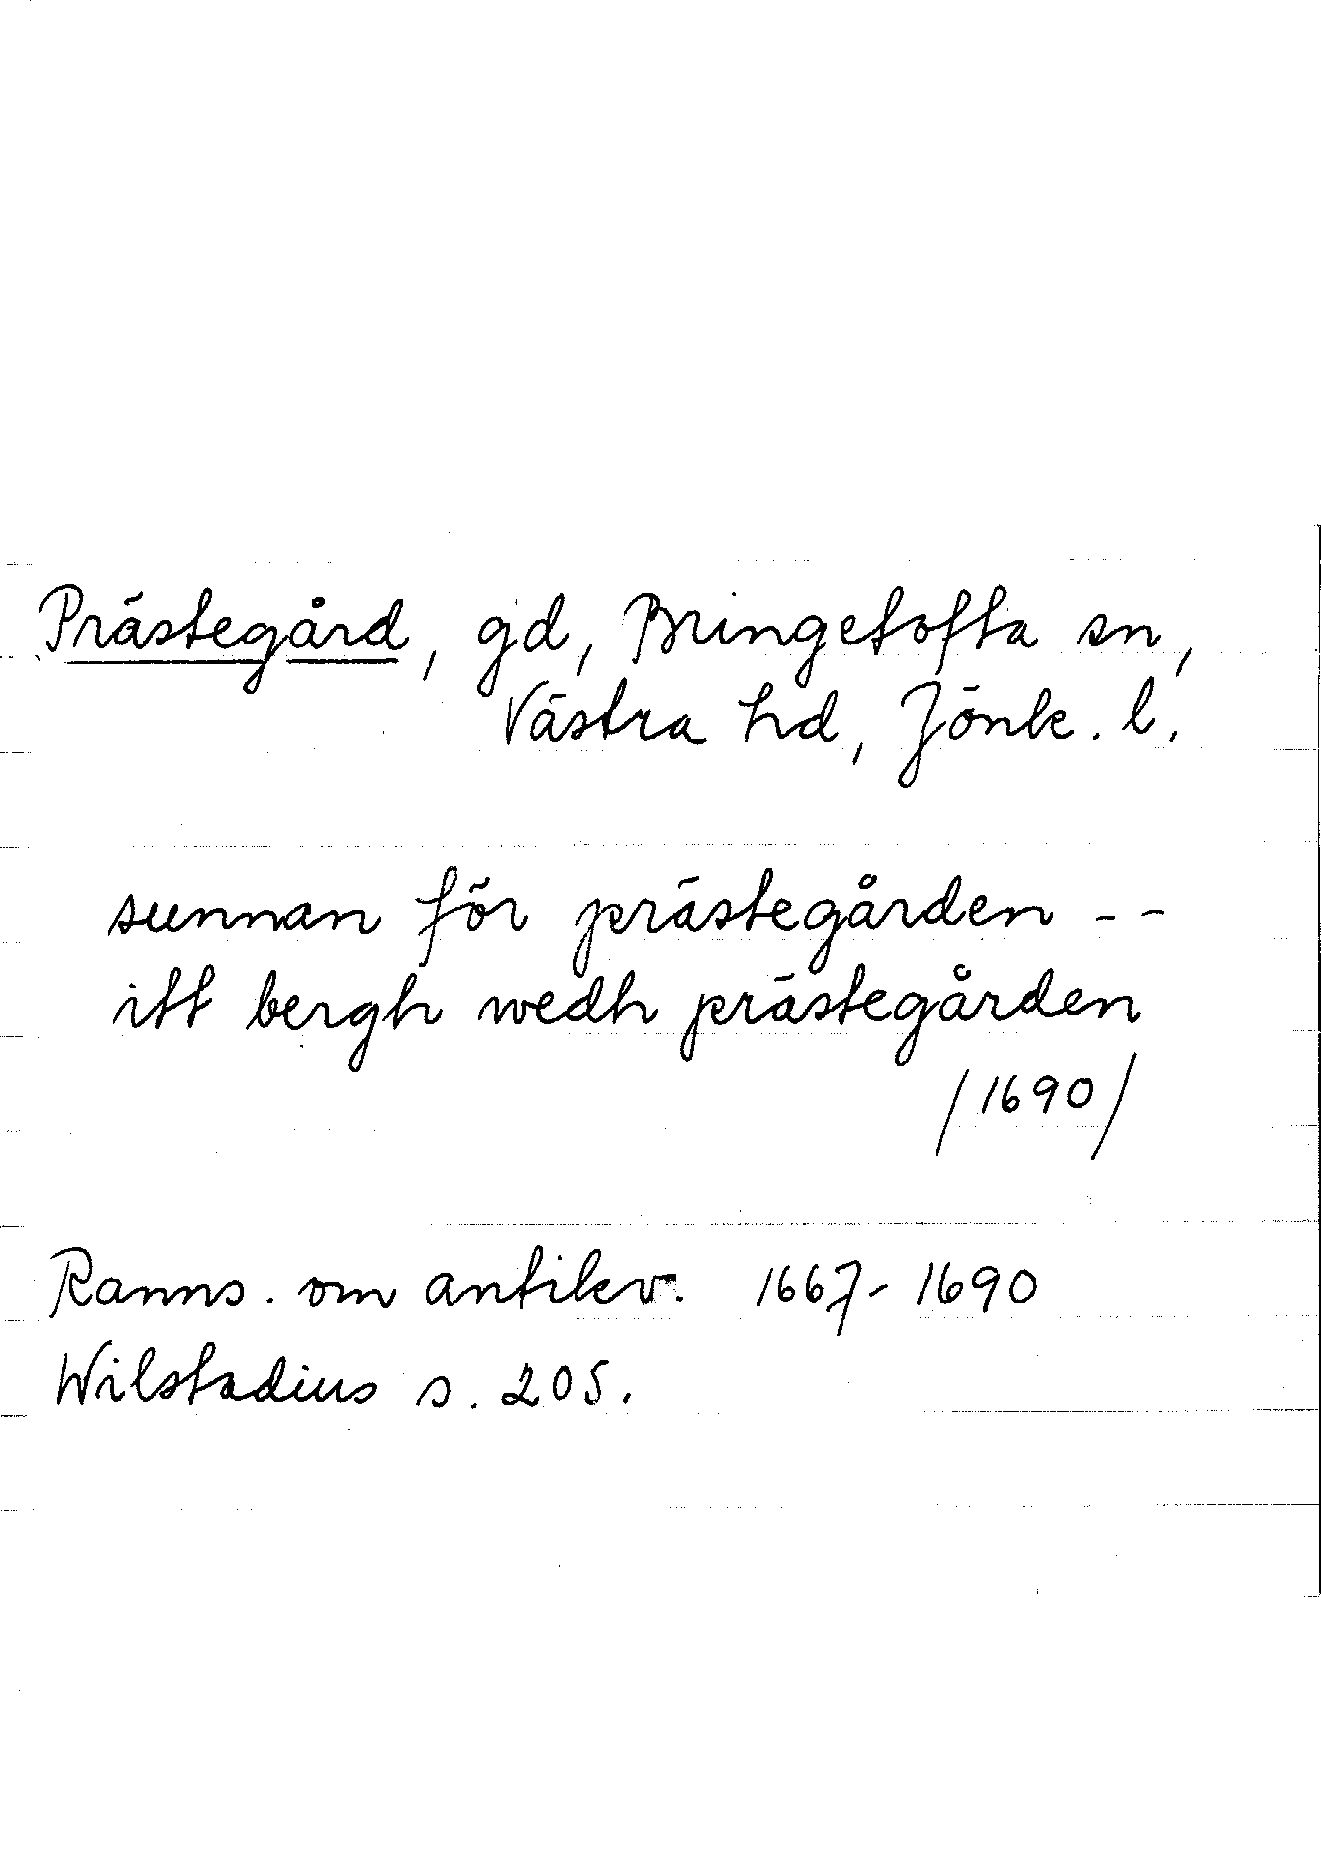 Prästegård, gd, Bringetofta sn,
Västra hd, Jönk. l.
sunnan för prästegården --
itt bergh wedh prästegården
/1690/
Ranns. om antikv. 1667-1690
Wilstadius s. 205.